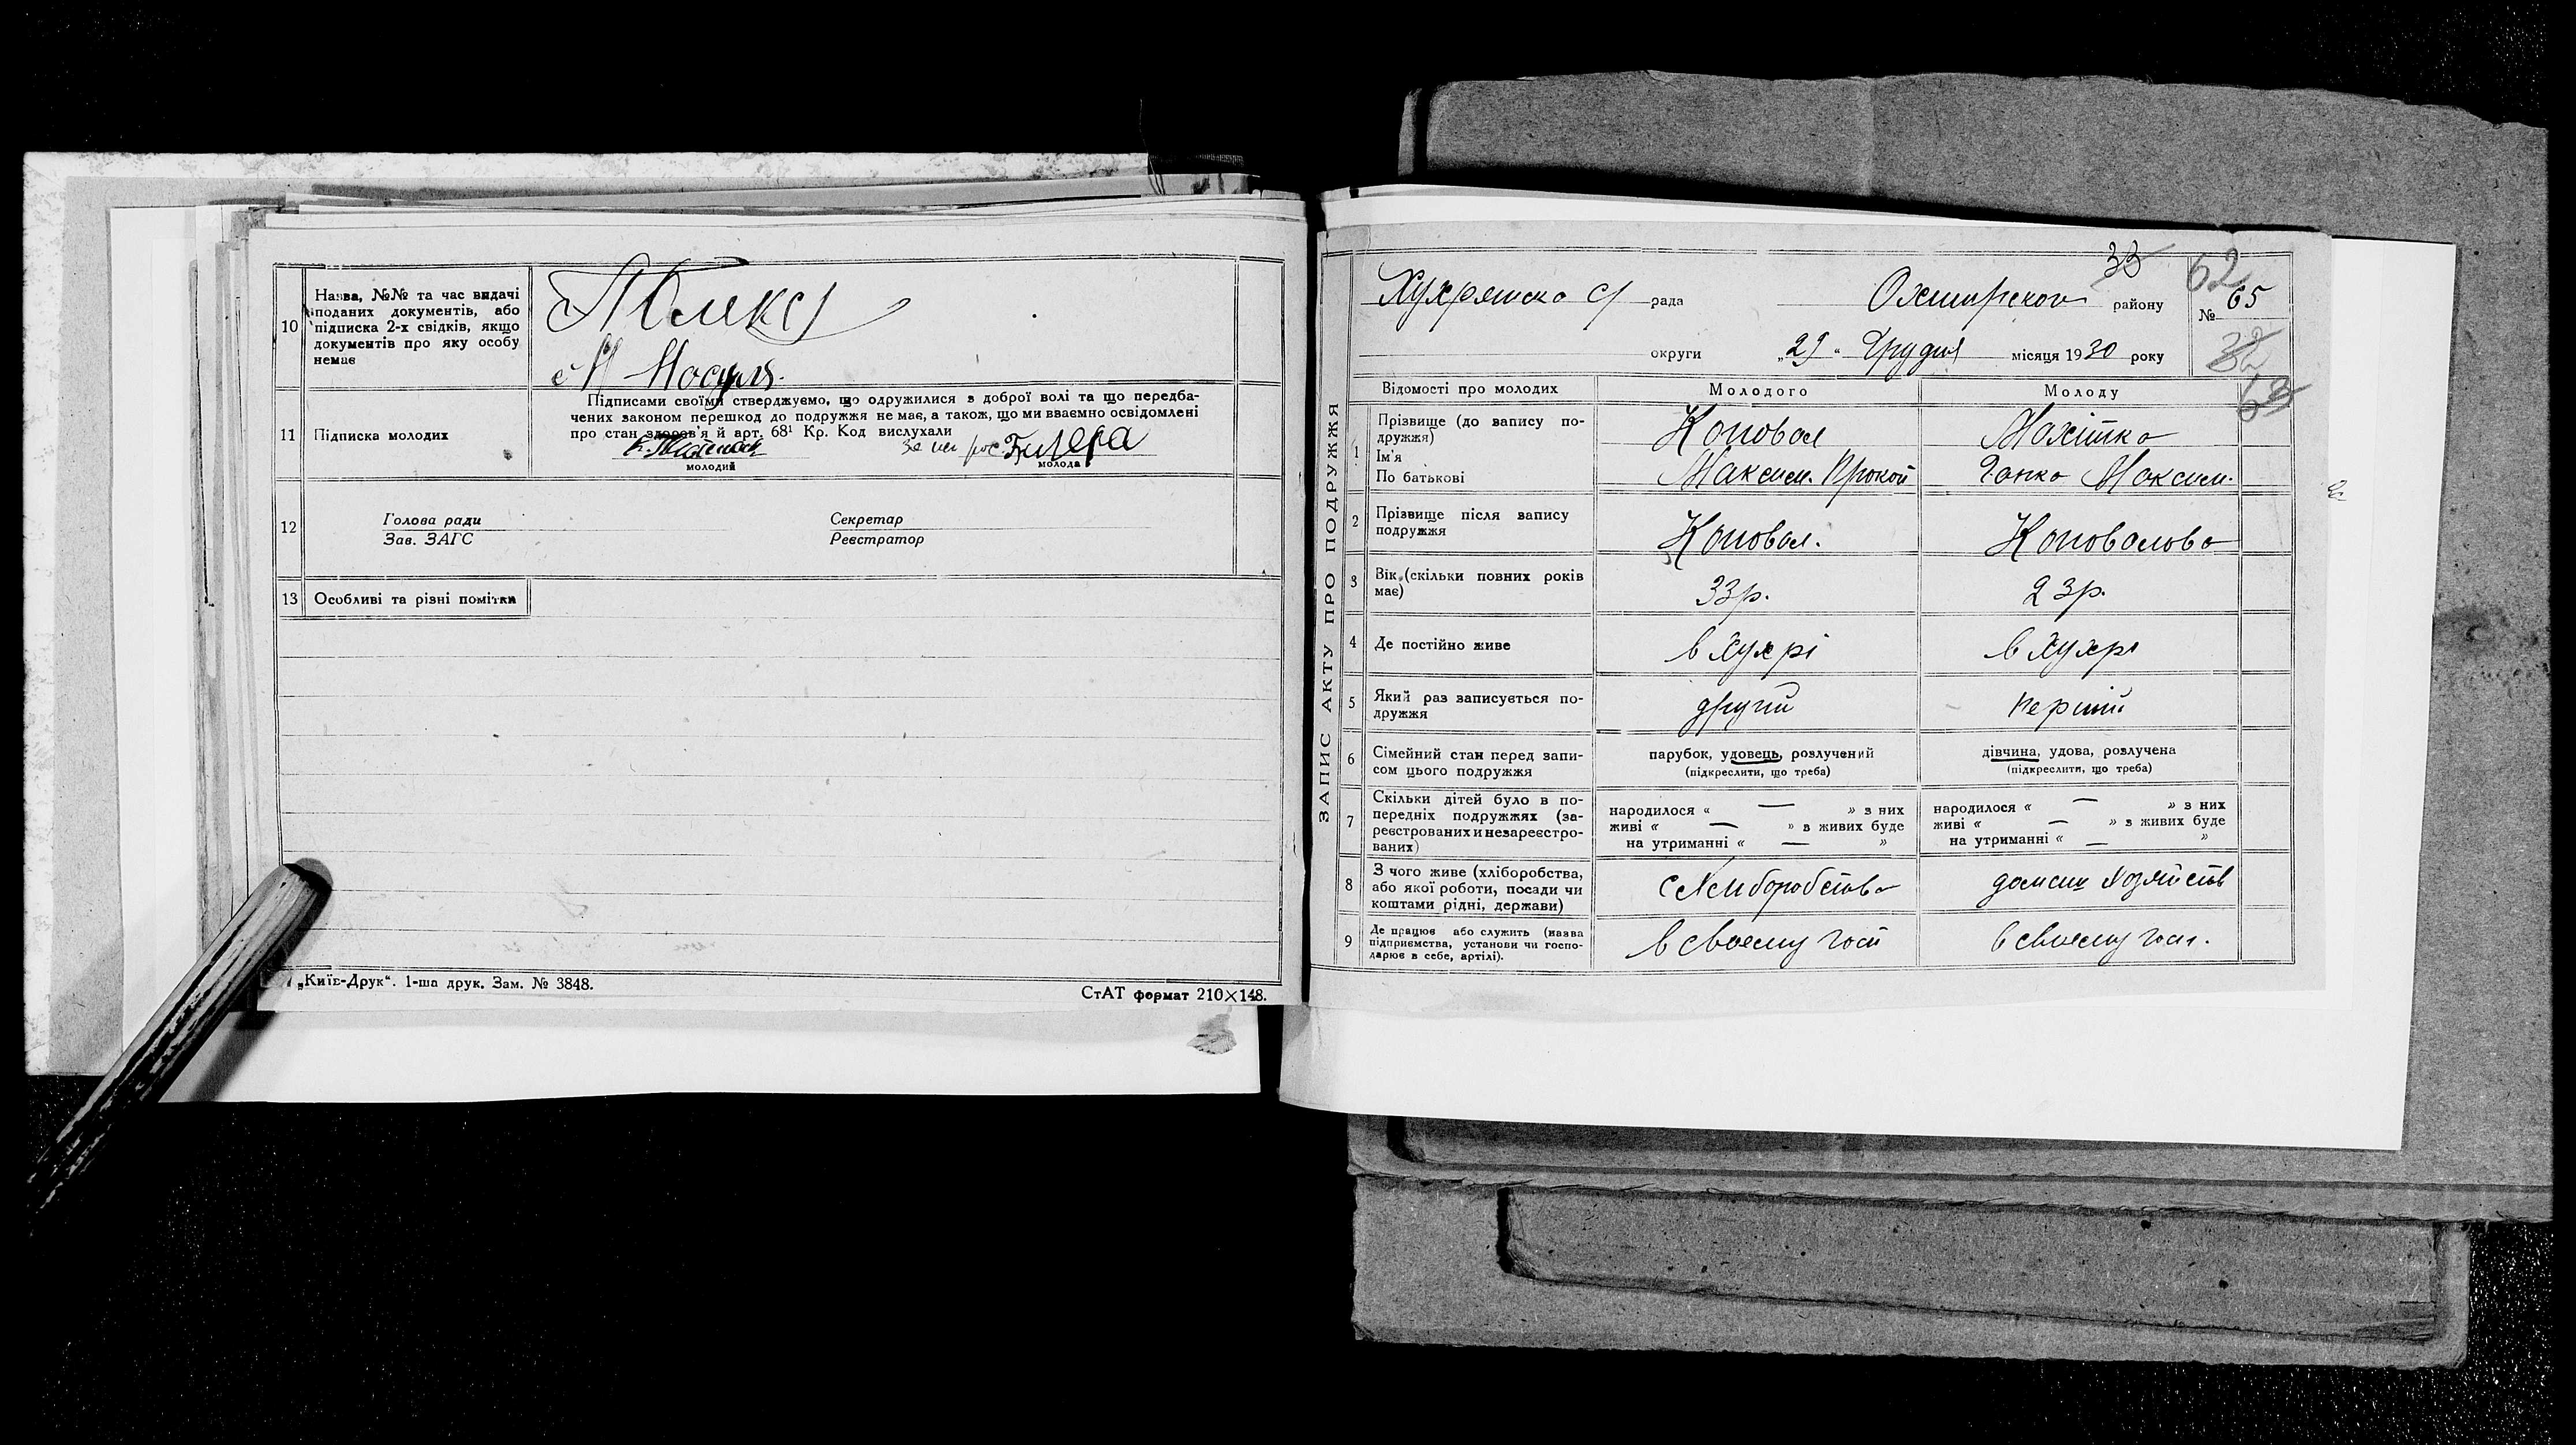 10
Назва, №№ та час видачі
поданих документів, або
підписка 2-х свідків, якщо
документів про яку особу
немає
11
Підписка молодих
Підписами своїми стверджуємо, що одружилися з доброї волі та що передба-
чених законом перешкод до подружжя не має, а також, що ми взаємно освідомлені
про стан здоров'я й арт. 68¹ Кр. Код вислухали
молодий
молода
12
Голова ради
Зав. ЗАГС
Секретар
Реєстратор
13
Особливі та різні помітки
„Київ-Друк“. 1-ша друк. Зам. № 3848.
СтАТ формат 210×148.
ЗАПИС АКТУ ПРО ПОДРУЖЖЯ
33
62
рада
району
№ 65
округи „29“ Грудня місяця 1930 року
32
63
Відомості про молодих
Молодого
Молоду
1
Прізвище (до запису по-
дружжя)
Ім'я
По батькові
Коновал
Максим. Прокоп
Махітка
Ганка Максим.
2
Прізвище після запису
подружжя
Коновал.
Коновалова
3
Вік (скільки повних років
має)
33р.
23р.
4
Де постійно живе
в Хухрі
в Хухрі
5
Який раз записується по-
дружжя
другий
перший
6
Сімейний стан перед запи-
сом цього подружжя
парубок, удовець, розлучений
(підкреслити, що треба)
дівчина, удова, розлучена
(підкреслити, що треба)
7
Скільки дітей було в по-
передніх подружжях (за-
реєстрованих и незареєстро-
ваних)
народилося « — » з них
живі « — » з живих буде
на утриманні « — »
народилося « — » з них
живі « — » з живих буде
на утриманні « — »
8
З чого живе (хліборобства,
або якої роботи, посади чи
коштами рідні, держави)
9
Де працює або служить (назва
підприємства, установи чи госпо-
дарює в себе, артілі).
в своему гос
в своему гос.